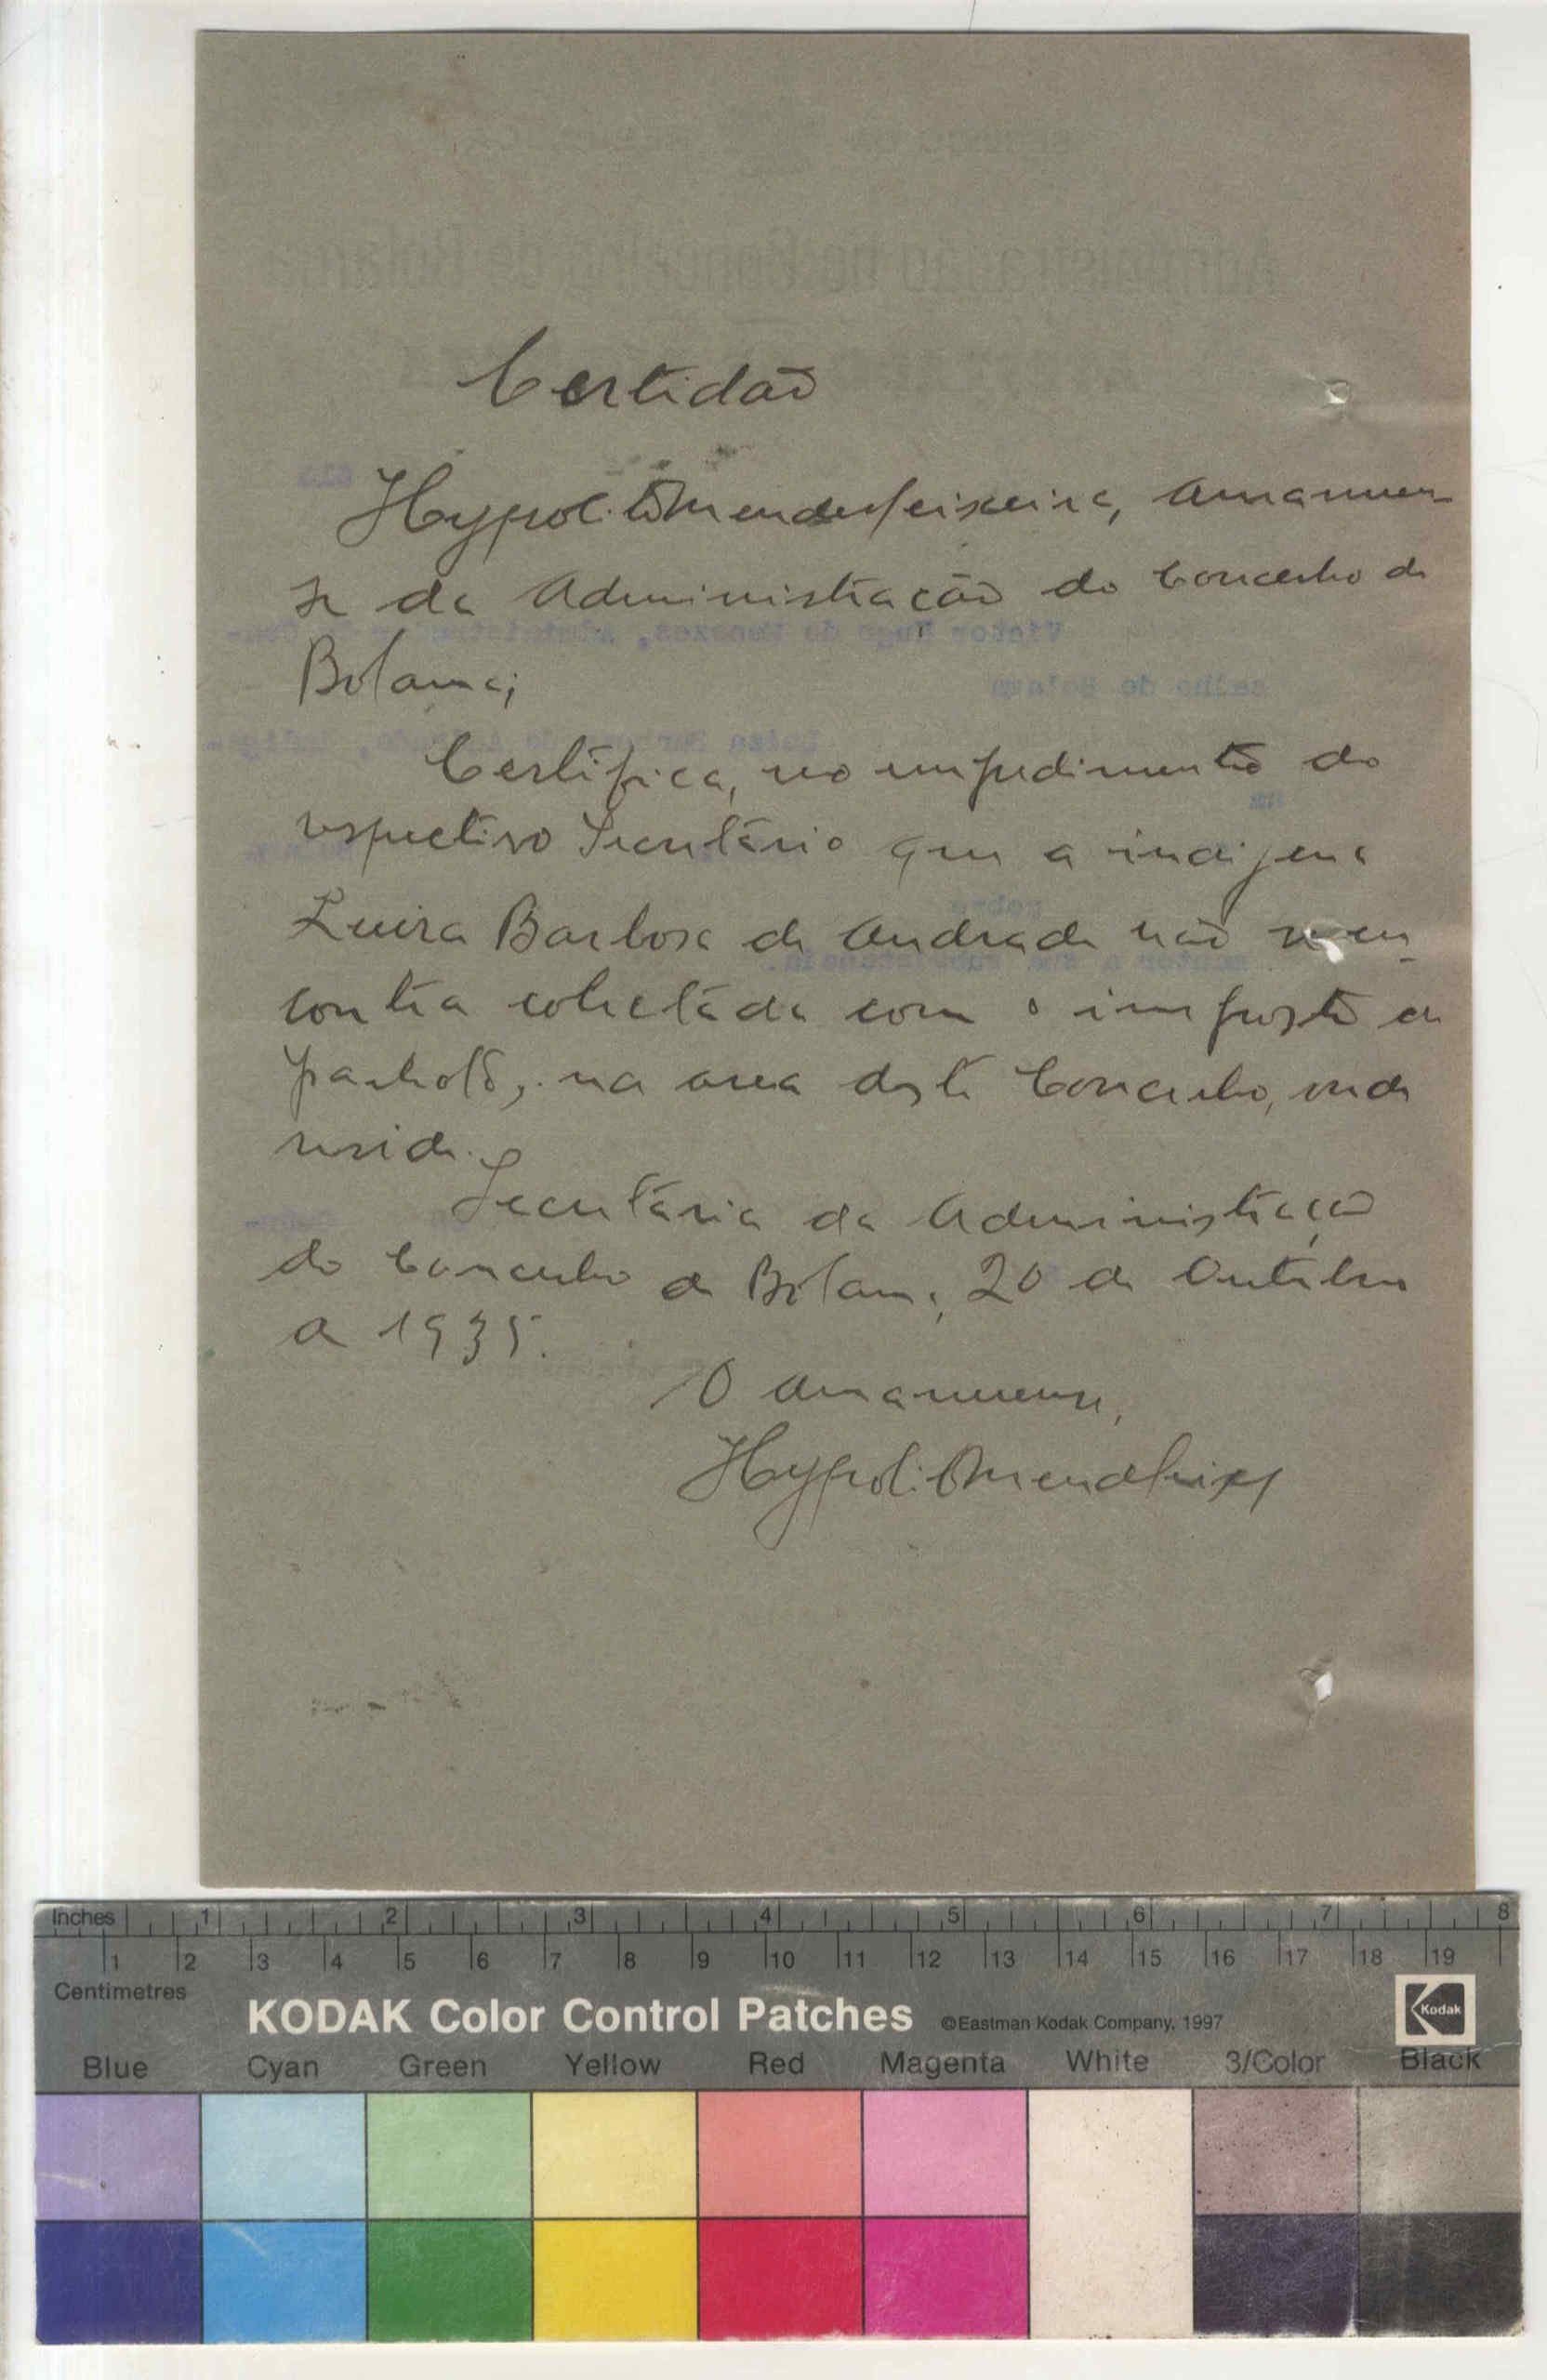 Certidão
Hypolito Mendes Teixeira, amanuen-
se da Administração do Concelho de
Bolama;
Certifica, no impedimento do
respectivo Secretário que a indigena
Luiza Barbosa de Andrade não se en-
contra colectada com o imposto de
palhota, na area deste Concelho, onde
reside.
Secretária da Administração
do Concelho de Bolama, 20 de Outubro
de 1935.
O amanuense,
Hypolito Mendes Teixª
Inches 1 2 3 4 5 6 7 8
1 2 3 4 5 6 7 8 9 10 11 12 13 14 15 16 17 18 19
Centimetres
KODAK Color Control Patches ©Eastman Kodak Company, 1997 Kodak
Blue Cyan Green Yellow Red Magenta White 3/Color Black